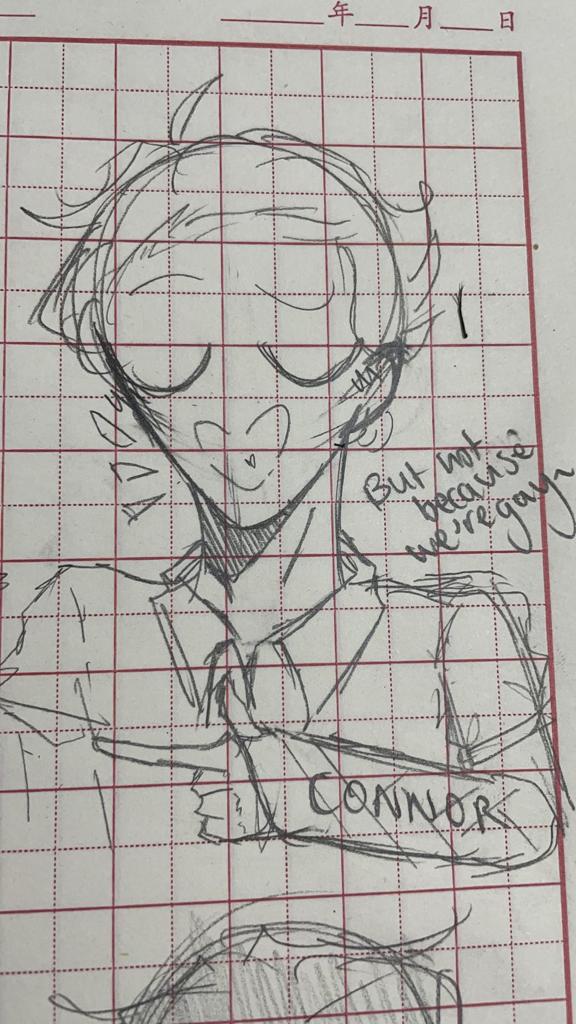 年 月 日
But not
because
we're gay
CONNOR